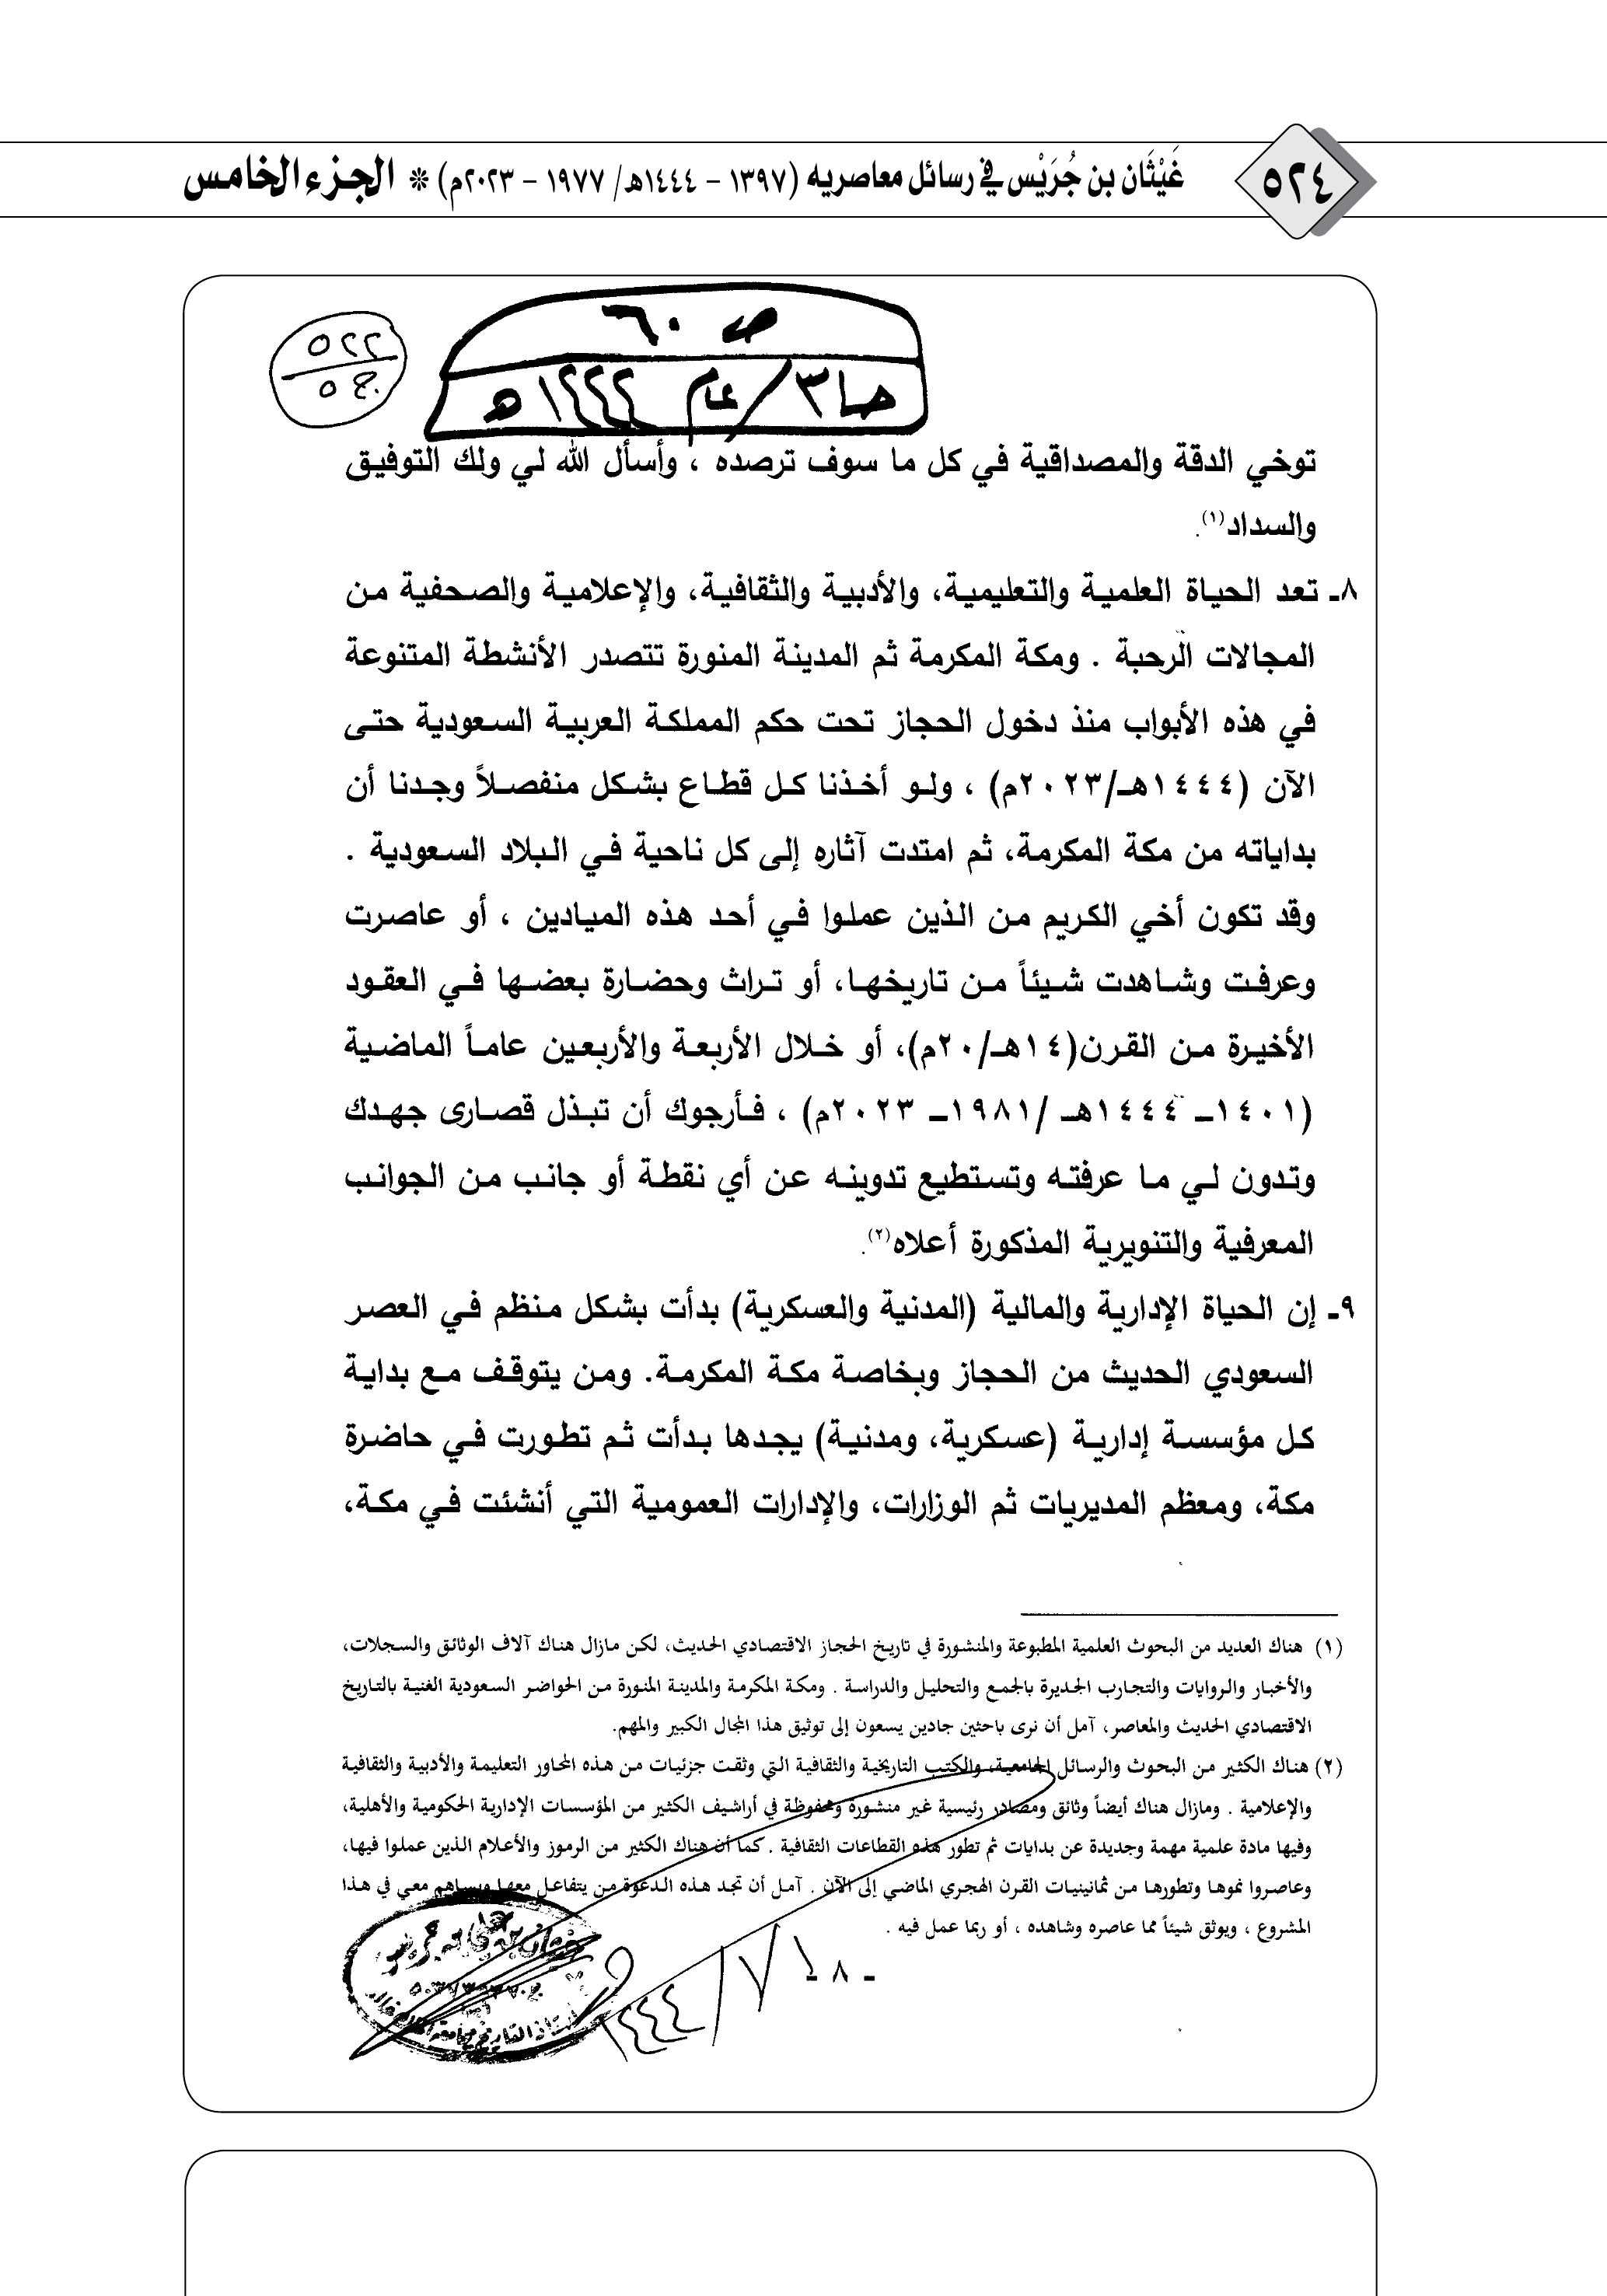 ٥٢٤
غَيْثَان بن جُرَيْس في رسائل معاصريه (١٣٩٧ – ١٤٤٤هـ/ ١٩٧٧ – ٢٠٢٣م) * الجزء الخامس
ص ٦٠
٥٢٢
ج ٥
صا٣/ عام ١٤٤٤هـ
توخي الدقة والمصداقية في كل ما سوف ترصده ، وأسأل الله لي ولك التوفيق
والسداد(١).
٨ـ تعد الحياة العلمية والتعليمية، والأدبية والثقافية، والإعلامية والصحفية من
المجالات الرحبة . ومكة المكرمة ثم المدينة المنورة تتصدر الأنشطة المتنوعة
في هذه الأبواب منذ دخول الحجاز تحت حكم المملكة العربية السعودية حتى
الآن (١٤٤٤هـ/٢٠٢٣م) ، ولو أخذنا كل قطاع بشكل منفصلاً وجدنا أن
بداياته من مكة المكرمة، ثم امتدت آثاره إلى كل ناحية في البلاد السعودية .
وقد تكون أخي الكريم من الذين عملوا في أحد هذه الميادين ، أو عاصرت
وعرفت وشاهدت شيئاً من تاريخها، أو تراث وحضارة بعضها في العقود
الأخيرة من القرن(١٤هـ/٢٠م)، أو خلال الأربعة والأربعين عاماً الماضية
(١٤٠١ـ ١٤٤٤هـ /١٩٨١ـ ٢٠٢٣م) ، فأرجوك أن تبذل قصارى جهدك
وتدون لي ما عرفته وتستطيع تدوينه عن أي نقطة أو جانب من الجوانب
المعرفية والتنويرية المذكورة أعلاه(٢).
٩ـ إن الحياة الإدارية والمالية (المدنية والعسكرية) بدأت بشكل منظم في العصر
السعودي الحديث من الحجاز وبخاصة مكة المكرمة. ومن يتوقف مع بداية
كل مؤسسة إدارية (عسكرية، ومدنية) يجدها بدأت ثم تطورت في حاضرة
مكة، ومعظم المديريات ثم الوزارات، والإدارات العمومية التي أنشئت في مكة،
(١) هناك العديد من البحوث العلمية المطبوعة والمنشورة في تاريخ الحجاز الاقتصادي الحديث، لكن مازال هناك آلاف الوثائق والسجلات،
والأخبار والروايات والتجارب الجديرة بالجمع والتحليل والدراسة . ومكة المكرمة والمدينة المنورة من الحواضر السعودية الغنية بالتاريخ
الاقتصادي الحديث والمعاصر، آمل أن نرى باحثين جادين يسعون إلى توثيق هذا المجال الكبير والمهم.
(٢) هناك الكثير من البحوث والرسائل الجامعية، والكتب التاريخية والثقافية التي وثقت جزئيات من هذه المحاور التعليمة والأدبية والثقافية
والإعلامية . ومازال هناك أيضاً وثائق ومصادر رئيسية غير منشورة ومحفوظة في أراشيف الكثير من المؤسسات الإدارية الحكومية والأهلية،
وفيها مادة علمية مهمة وجديدة عن بدايات ثم تطور هذه القطاعات الثقافية . كما أن هناك الكثير من الرموز والأعلام الذين عملوا فيها،
وعاصروا نموها وتطورها من ثمانينيات القرن الهجري الماضي إلى الآن . آمل أن تجد هذه الدعوة من يتفاعل معها ويساهم معي في هذا
المشروع ، ويوثق شيئاً مما عاصره وشاهده ، أو ربما عمل فيه .
- ٨ -